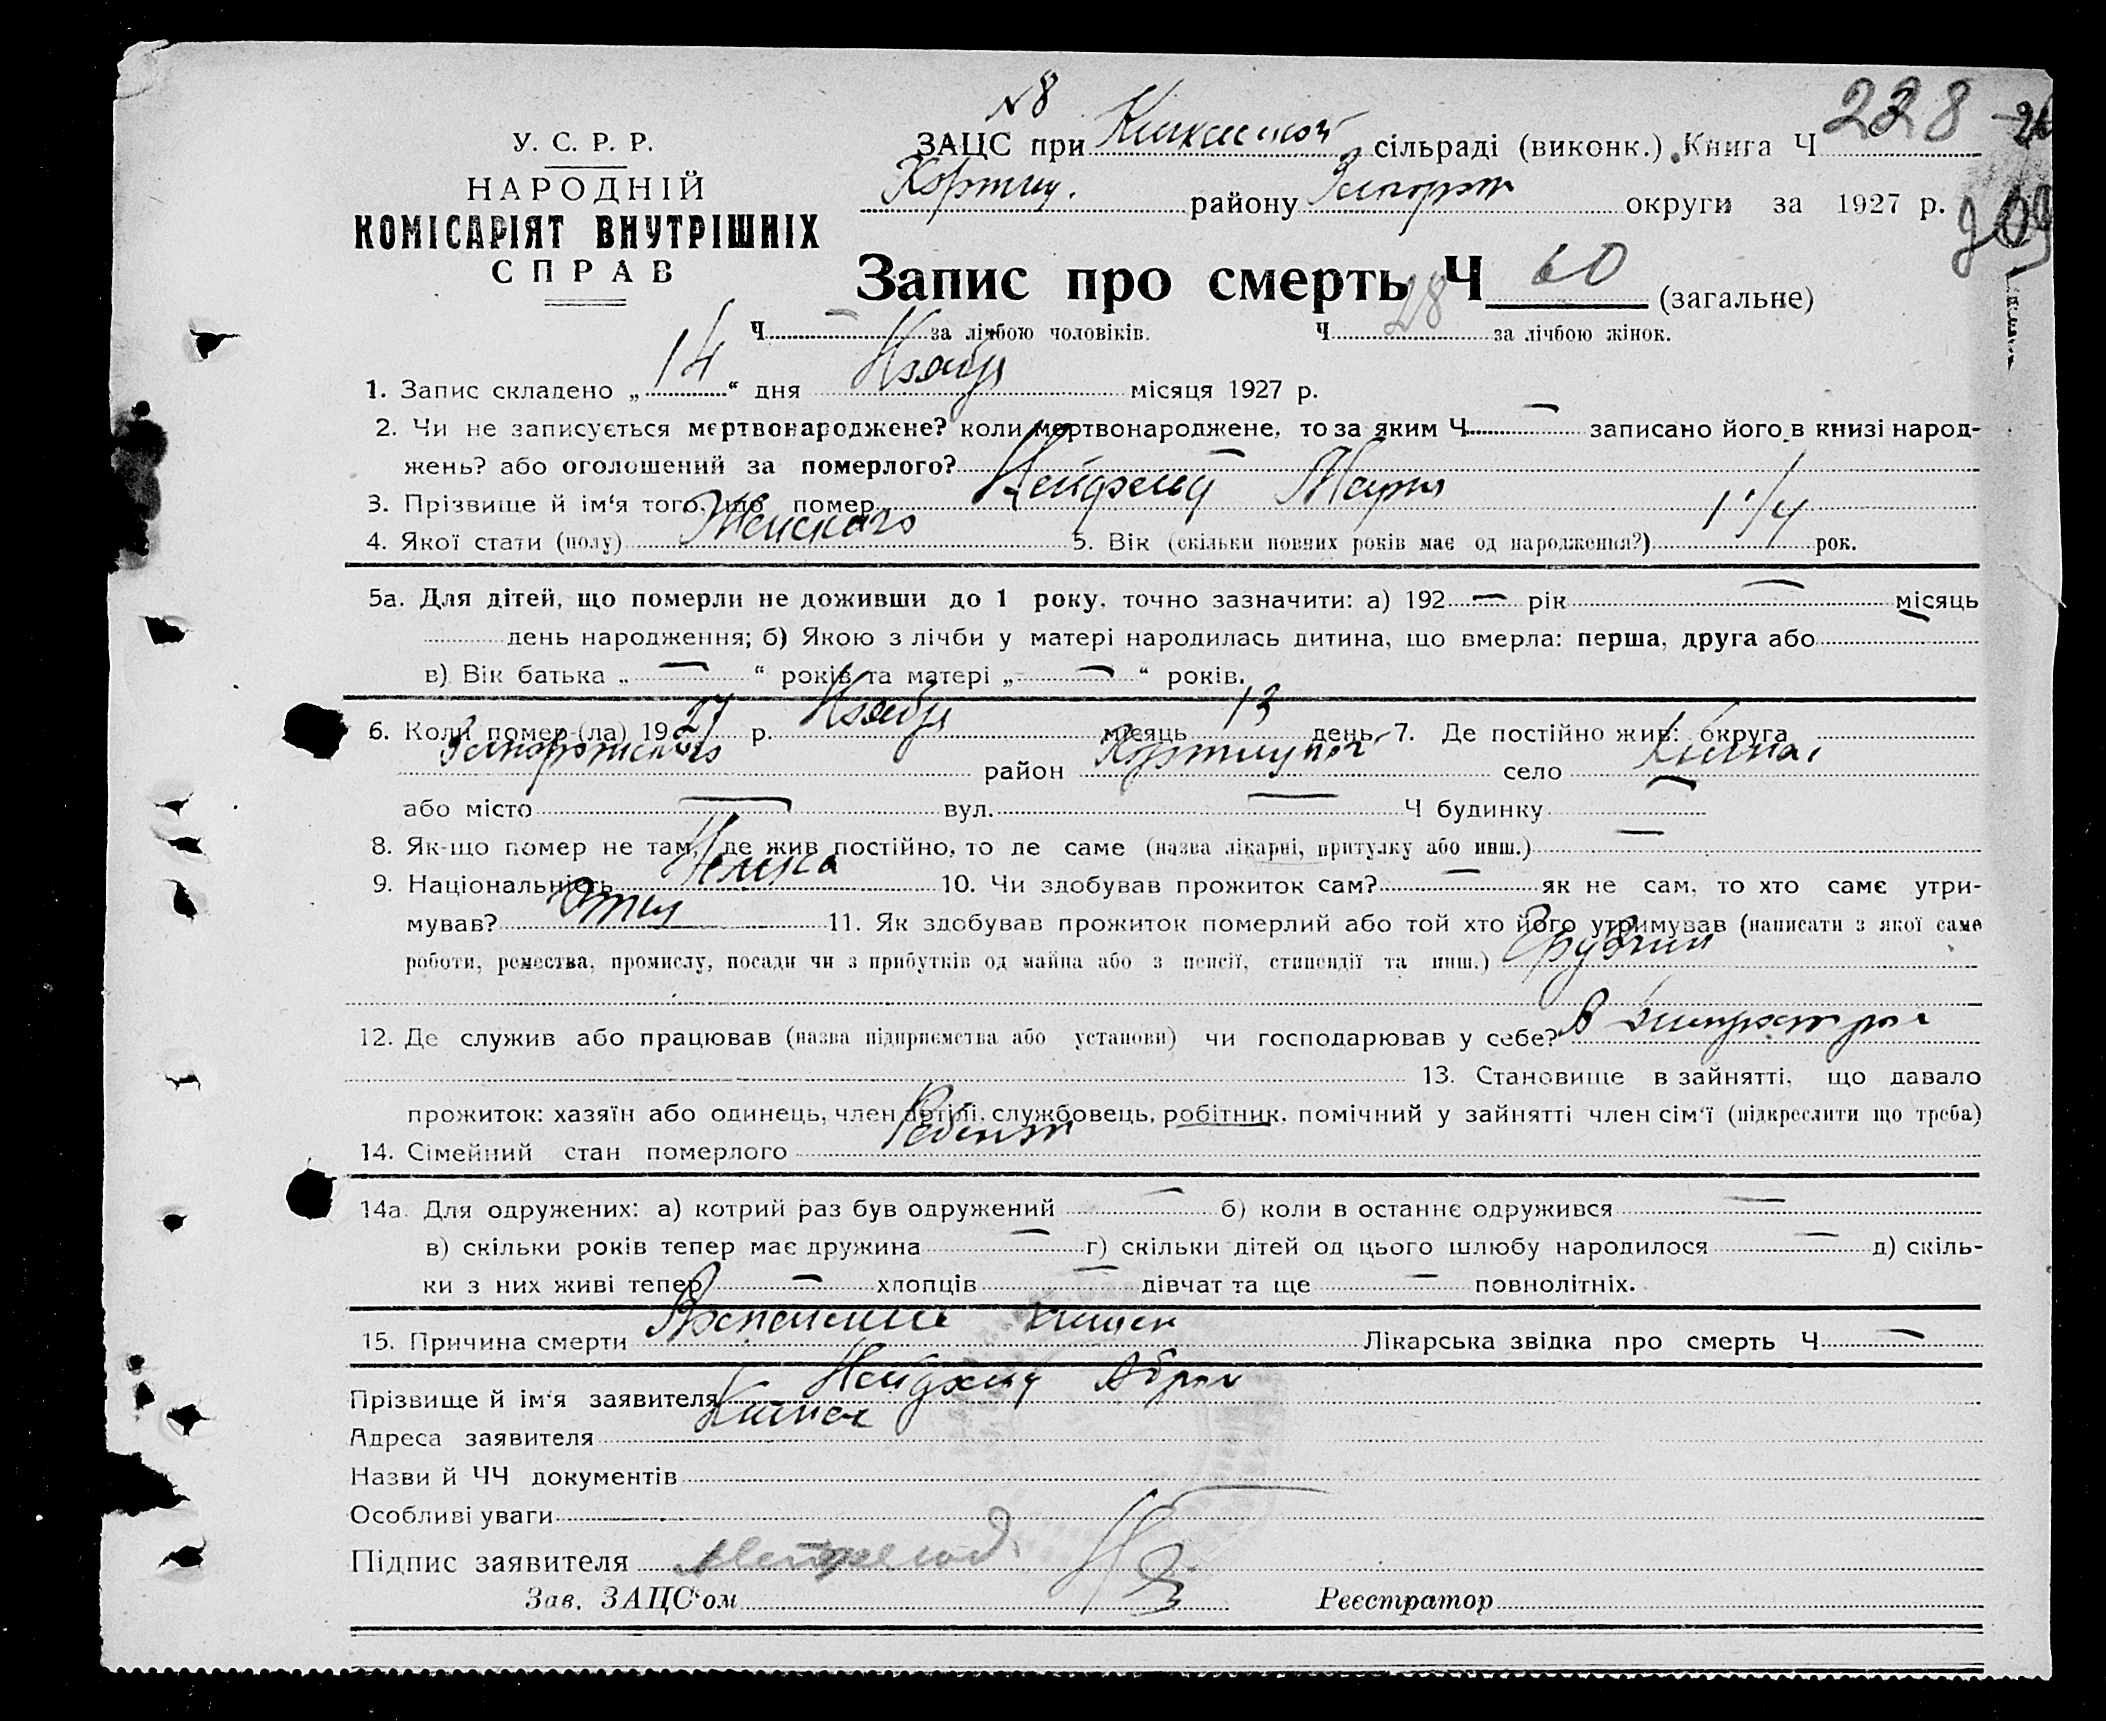 № 8
228
У. С. Р. Р.
ЗАЦС при сільраді (виконк.) Книга Ч
НАРОДНІЙ
Кортиц. району Запорож округи за 1927 р.
КОМІСАРІЯТ ВНУТРІШНІХ
СПРАВ
Запис про смерть Ч 60 (загальне)
Ч — за лічбою чоловіків. Ч 28 за лічбою жінок.
1. Запис складено „ 14 “ дня Ноября місяця 1927 р.
2. Чи не записується мертвонароджене? коли мертвонароджене, то за яким Ч — записано його в книзі народ-
жень? або оголошений за померлого? —
3. Прізвище й ім‘я того, що помер Нейфельд Мария
4. Якої стати (полу) Женскаго 5. Вік (скільки повних років має од народження?) 1 1/4 рок.
5а. Для дітей, що померли не доживши до 1 року, точно зазначити: а) 192 — рік — місяць
— день народження; б) Якою з лічби у матері народилась дитина, що вмерла: перша, друга або
в) Вік батька „ — “ років та матері „ — “ років.
6. Коли помер (ла) 1927 р. Ноября місяць 13 день 7. Де постійно жив: округа
Запорожскаго район село
або місто — вул. — Ч будинку —
8. Як-що помер не там, де жив постійно, то де саме (назва лікарні, притулку або инш.) —
9. Національність Немка 10. Чи здобував прожиток сам? — як не сам, то хто саме утри-
мував? Отец 11. Як здобував прожиток померлий або той хто його утримував (написати з якої саме
роботи, ремества, промислу, посади чи з прибутків од майна або з пенсії, стипендії та инш.)
12. Де служив або працював (назва підприємства або установи) чи господарював у себе? В
13. Становище в зайнятті, що давало
прожиток: хазяїн або одинець, член артілі, службовець, робітник, помічний у зайнятті член сім‘ї (підкреслити що треба)
14. Сімейний стан померлого
14а. Для одружених: а) котрий раз був одружений — б) коли в останнє одружився —
в) скільки років тепер має дружина — г) скільки дітей од цього шлюбу народилося — д) скіль-
ки з них живі тепер — хлопців — дівчат та ще — повнолітніх.
15. Причина смерти Воспаление кишек Лікарська звідка про смерть Ч —
Прізвище й ім‘я заявителя Нейфельд Абрам
Адреса заявителя Кичкас
Назви й ЧЧ документів
Особливі уваги
Підпис заявителя
Зав. ЗАЦС‘ом Реєстратор